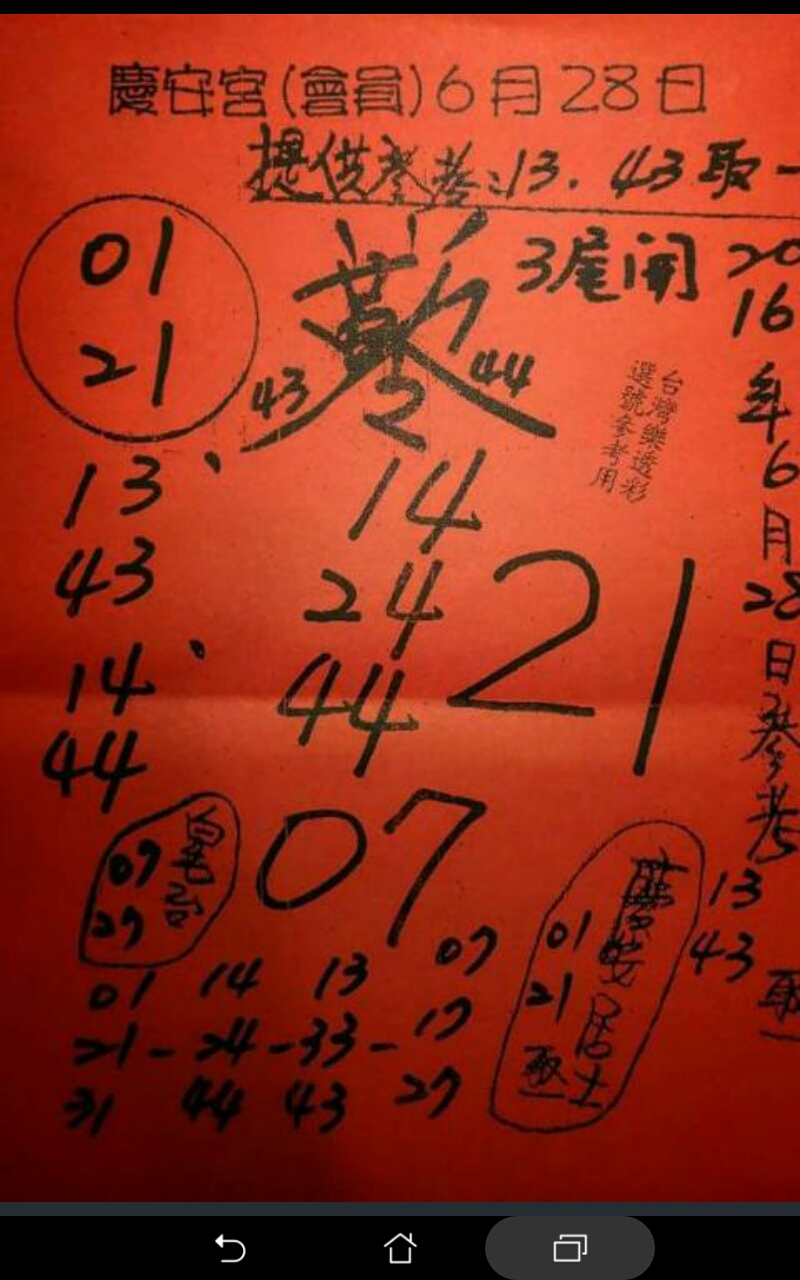 慶安宮(會員)6月28日
提供參考:13.43取一
01
21
43
44
2
3尾開
2016年6月28日參考
13
43
取一
台灣樂透彩
選號參考用
13、
43
14、
44
14
24
44
21
07
07
27
01 14 13 07
21-24-33-17
31 44 43 27
慶安居士
01
21
取一